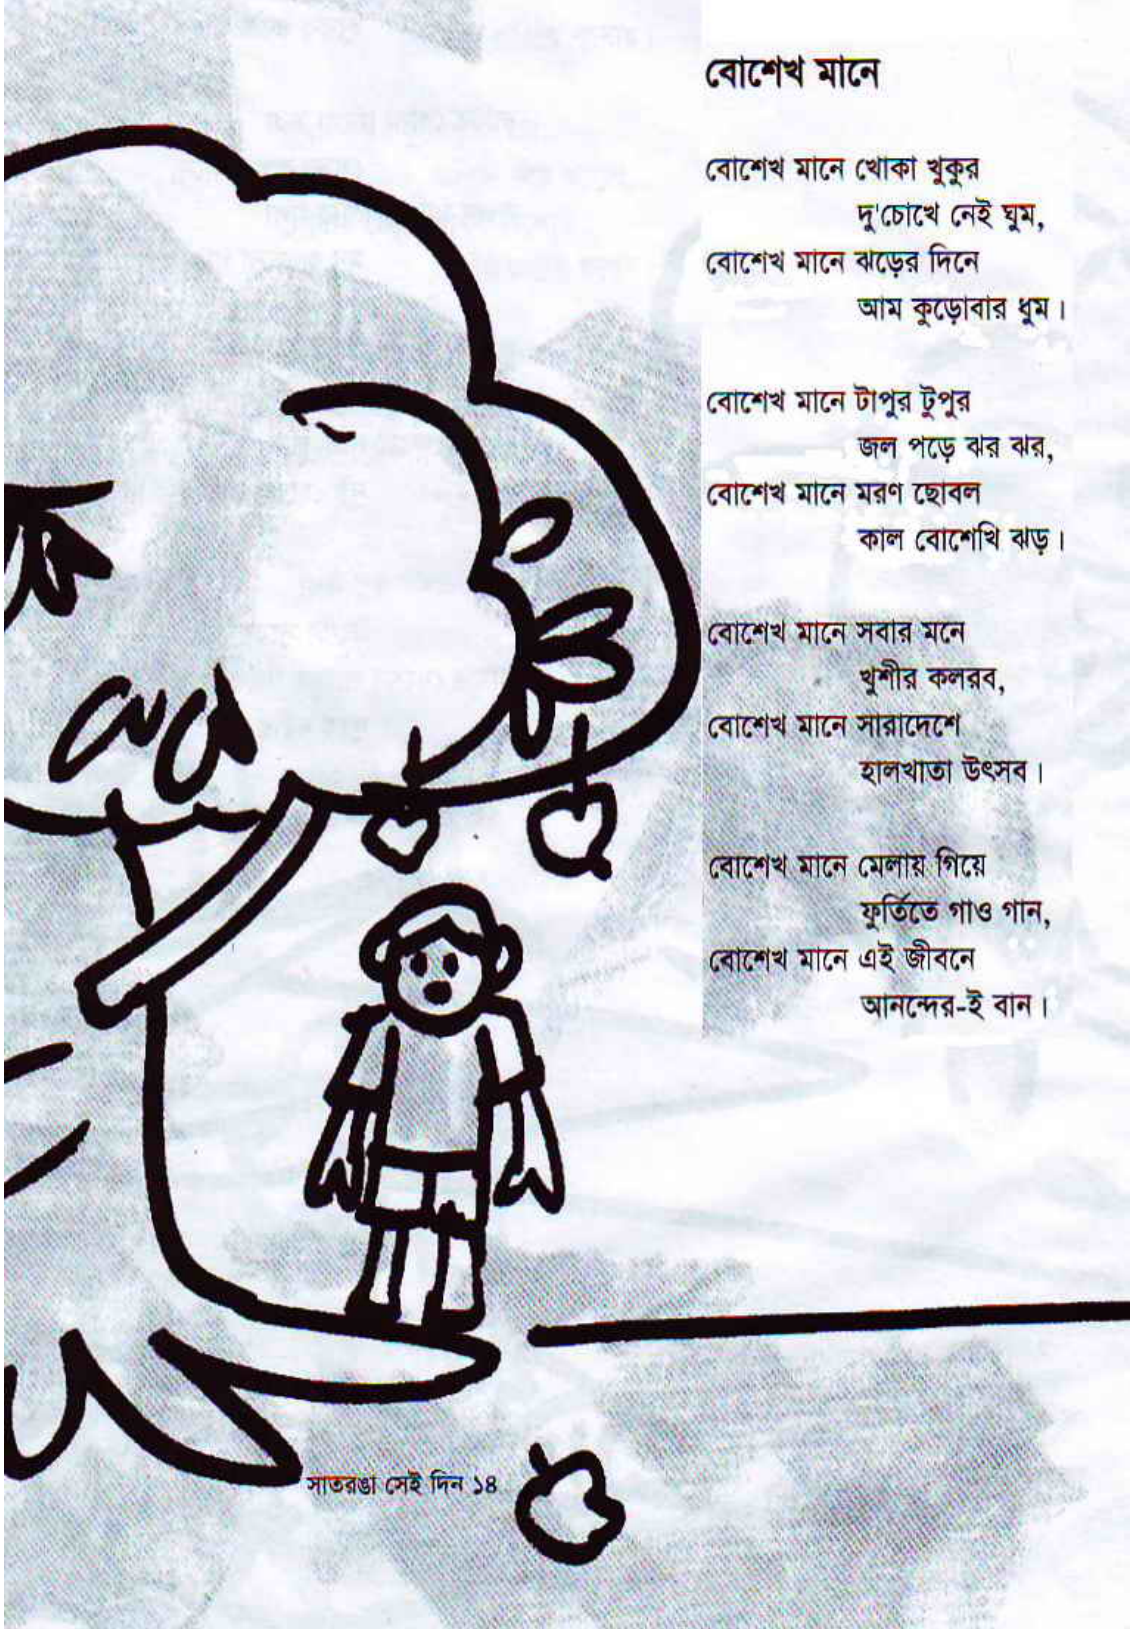 বোশেখ মানে
বোশেখ মানে খোকা খুকুর
দু'চোখে নেই ঘুম,
বোশেখ মানে ঝড়ের দিনে
আম কুড়োবার ধুম।
বোশেখ মানে টাপুর টুপুর
জল পড়ে ঝর ঝর,
বোশেখ মানে মরণ ছোবল
কাল বোশেখি ঝড়।
বোশেখ মানে সবার মনে
খুশীর কলরব,
বোশেখ মানে সারাদেশে
হালখাতা উৎসব।
বোশেখ মানে মেলায় গিয়ে
ফুর্তিতে গাও গান,
বোশেখ মানে এই জীবনে
আনন্দের-ই বান।
সাতরঙা সেই দিন ১৪